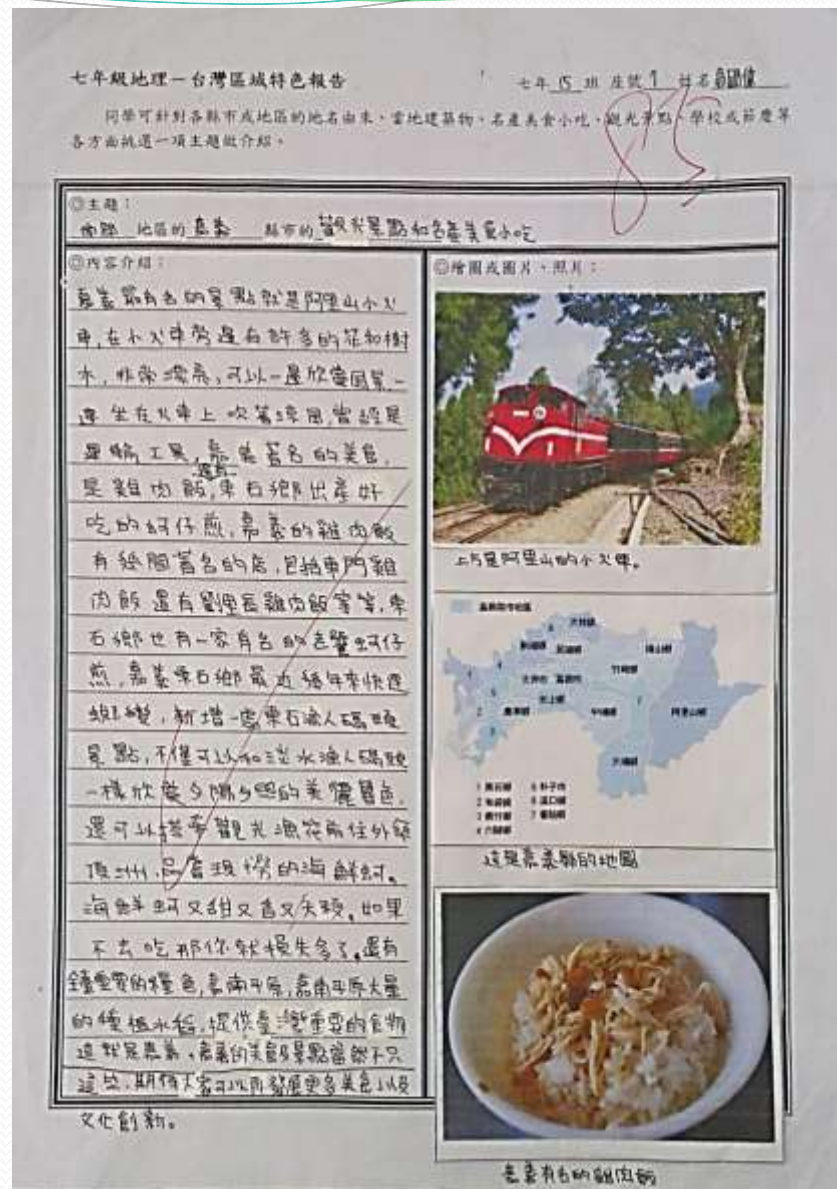 七年級地理－台灣區域特色報告
七年 15 班 座號 1 姓名
同學可針對各縣市或地區的地名由來、當地建築物、名產美食小吃、觀光景點、學校或節慶等
各方面挑選一項主題做介紹。
85
◎主題：
南部 地區的 嘉義 縣市的 觀光景點和名產美食小吃
◎內容介紹：
嘉義最有名的景點就是阿里山小火
車,在小火車旁邊有許多的花和樹
木,非常漂亮,可以一邊欣賞風景,一
邊坐在火車上吹著涼風,曾經是
運輸工具,嘉義著名的美食,
是雞肉飯,還有東石鄉出產好
吃的蚵仔煎,嘉義的雞肉飯
有幾間著名的店,包括東門雞
肉飯還有劉里長雞肉飯等等,東
石鄉也有一家有名的 蚵仔
煎,嘉義東石鄉最近幾年來快速
蛻變,新增一處東石漁人碼頭
景點,不僅可以和淡水漁人碼頭
一樣欣賞夕陽夕照的美麗景色,
還可以搭乘觀光漁筏前往外傘
頂洲,品嘗現撈的海鮮蚵。
海鮮蚵又甜又香又 ,如果
不去吃那你就損失多了,還有
重要的糧倉,嘉南平原,嘉南平原大量
的種植水稻,提供臺灣重要的食物
這就是嘉義,嘉義的美食景點當然不只
這些,期待大家可以再發展更多美食以及
文化創新。
◎繪圖或圖片、照片：
上方是阿里山的小火車。
大林鎮
梅山鄉
竹崎鄉
阿里山鄉
中埔鄉
大埔鄉
水上鄉
鹿草鄉
1 東石鄉
2 布袋鎮
3 義竹鄉
4 六腳鄉
5 朴子市
6 溪口鄉
7 番路鄉
這是嘉義縣的地圖
嘉義有名的雞肉飯